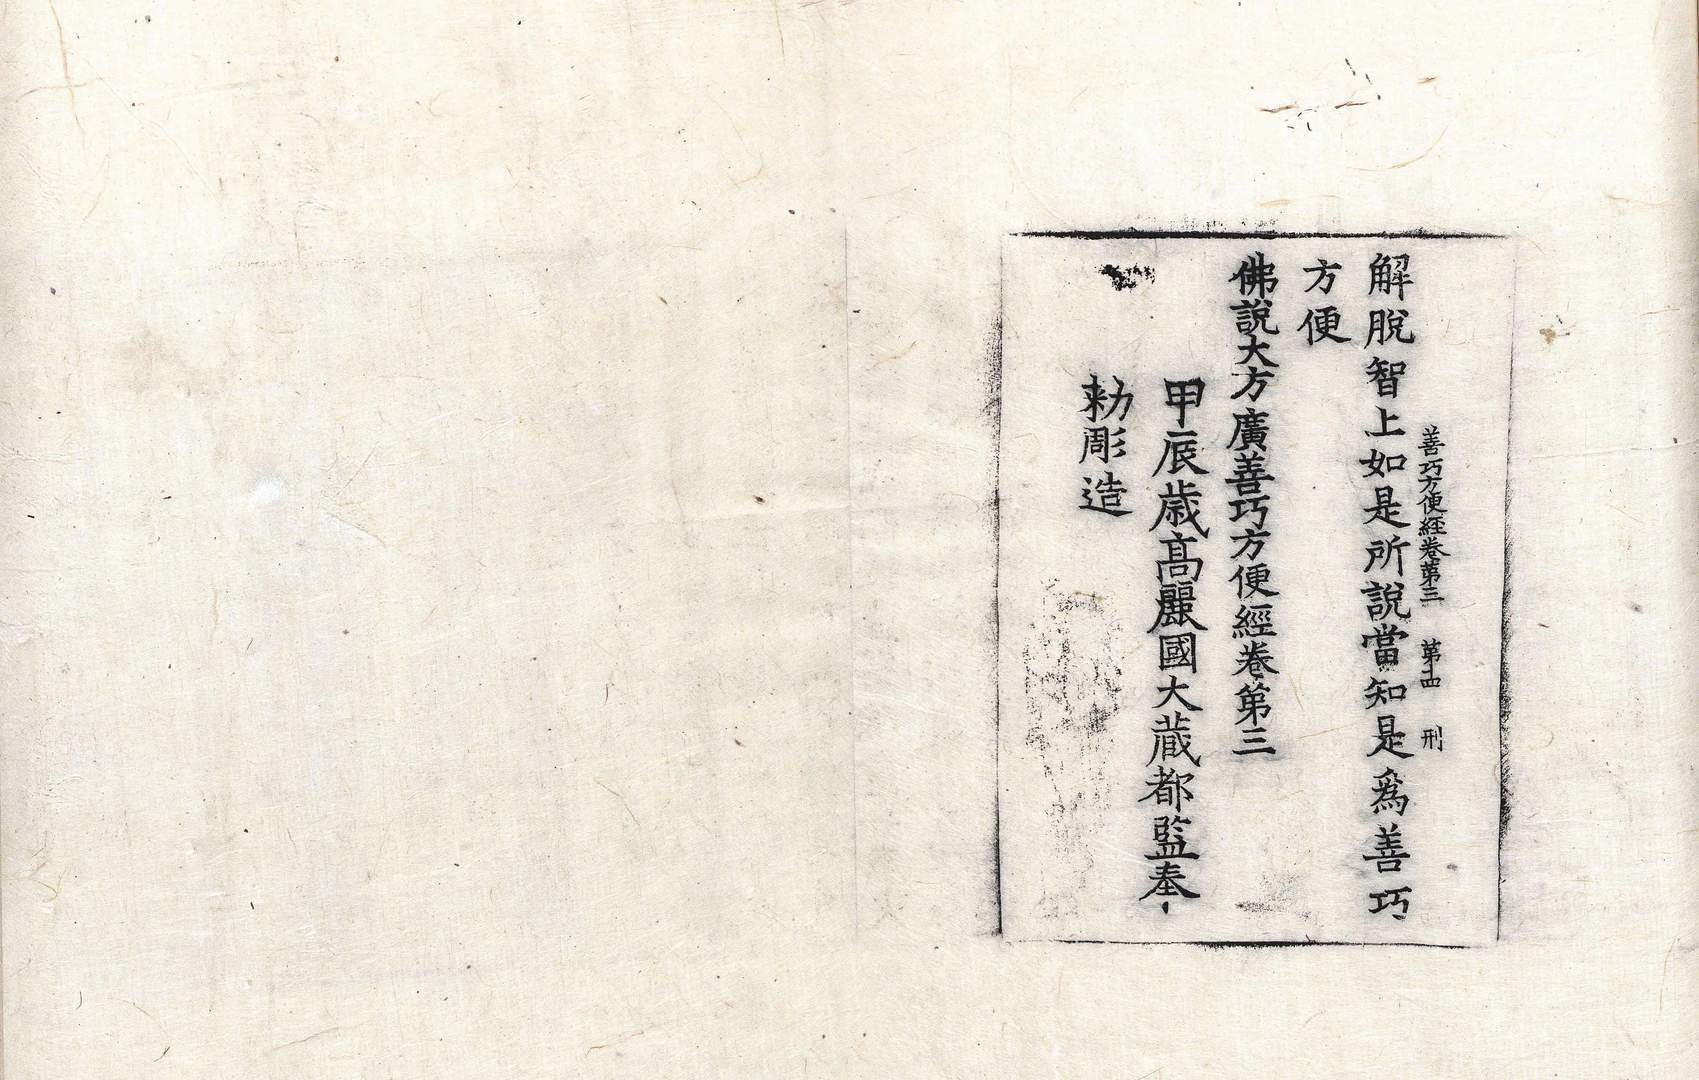 善巧方便経卷第三 第十四 刑
解脫智上如是所說當知是爲善巧
方便
佛說大方廣善巧方便經卷第三
甲辰歲高麗國大藏都監奉
勅彫造